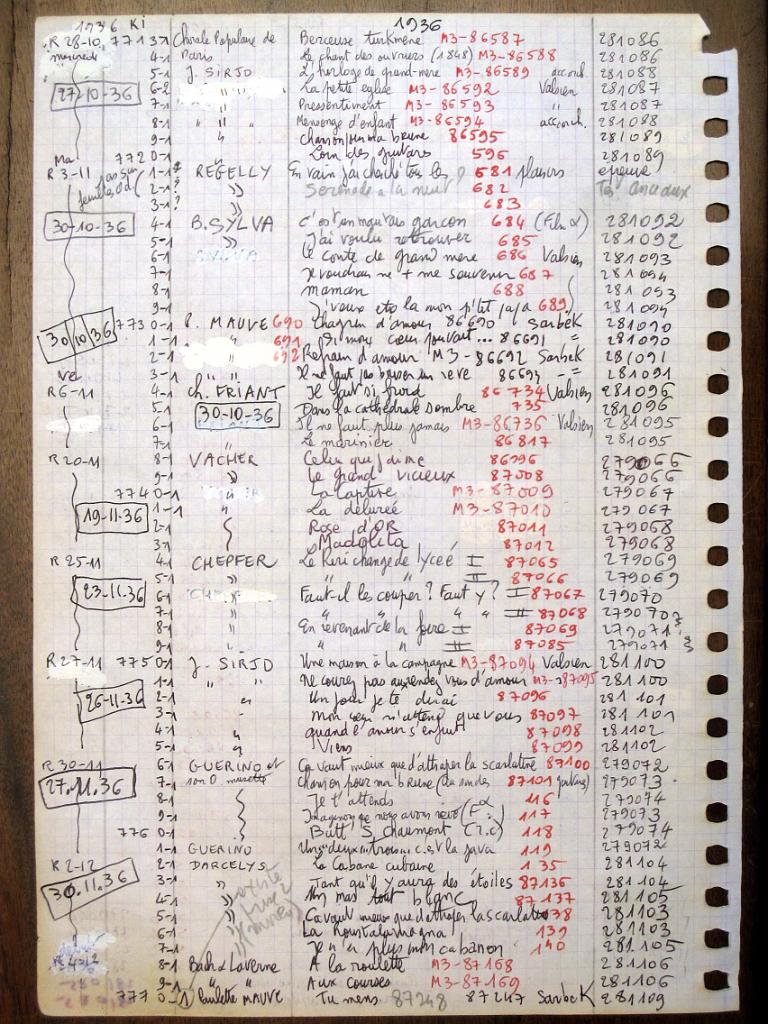 1936 Ki 1936
R 28-10 771 3-1 Chorale Populaire de Berceuse turkmène M3-86587 281086
mercredi 4-1 Paris Le chant des ouvriers (1848) M3-86588 281086
5-1 J. SIRJO L'horloge de grand-mère M3-86589 accord. 281088
27-10-36 6-1 La petite église M3-86592 Valsien 281087
7-1 " " Pressentiment M3-86593 " 281087
8-1 " " Mensonge d'enfant M3-86594 accord. 281088
9-1 " ma brune 86595 281089
Ma 772 0-1 Loin des guitares 596 281089
R 3-11 1-1 REGELLY En vain j'ai cherché tous les 681 plaisirs épreuve
2-1 ? " Serenade a la nuit 682
3-1 ? 683
30-10-36 4-1 B. SYLVA C'est un mauvais garçon 684 (Film) 281092
5-1 " J'ai voulu retrouver 685 281092
6-1 Le conte de grand mère 686 Valsien 281093
7-1 Je voudrais ne + me souvenir 687 281094
8-1 maman 688 281093
9-1 J'veux etr la mon p'tit 689 281094
30 10 36 773 0-1 P. MAUVE 690 Chagrin d'amour 86690 Sarbek 281090
1-1 " 691 Si mon cœur pouvait... 86691 -=- 281090
2-1 " 692 Refrain d'amour M3-86692 Sarbek 281091
Ve 3-1 " " Il ne faut pas briser un rêve 86693 -=- 281091
R 6-11 4-1 Ch. FRIANT Il fait si froid 86734 Valsien 281096
5-1 30-10-36 Dans la cathédrale sombre 735 281096
6-1 Il ne faut plus jamais M3-86736 Valsien 281095
7-1 " Le marinier 86817 281095
R 20-11 8-1 VACHER Celui que j'aime 86996 279066
9-1 " Le grand vicieux 87008 279066
774 0-1 La Capture M3-87009 279067
19-11-36 1-1 " La délurée M3-87010 279067
2-1 Rose d'OR 87011 279068
3-1 Madolita 87012 279068
R 25-11 4-1 CHEPFER Le Kiri change de lyceé I 87065 279069
5-1 " " II 87066 279069
23-11-36 6-1 Faut-il les couper? Faut y? I 87067 279070
7-1 " " " " II 87068 279070
8-1 " En revenant de la foire I 87069 279071
9-1 " " II 87085 279071
R 27-11 775 0-1 J. SIRJO Une maison à la campagne M3-87094 Valsien 281100
1-1 " " Ne courez pas au rendez vous d'amour M3-87095 281100
26-11-36 2-1 " Un jour je te dirai 87096 281101
3-1 - Mon cœur n'attend que vous 87097 281101
4-1 " quand l'amour s'enfuit 87098 281102
5-1 " Viens 87099 281102
R 30-11 6-1 GUERINO et Ça vaut mieux que d'attraper la scarlatine 87100 279072
27.11.36 7-1 son O musette Chanson pour ma brune 87101 279073
8-1 Je t'attends 116 279074
9-1 117 279073
776 0-1 Butt S Chaumont (T.C) 118 279074
1-1 GUERINO Un deux trois... c'est la java 119 279072
R 2-12 2-1 DARCELYS La Cabane cubaine 135 281104
30.11.36 3-1 " Tant qu'il y aura des étoiles 87136 281104
4-1 " Un mas tout blanc 87137 281105
5-1 " Ca vaut mieux que d'attraper la scarlati 138 281103
6-1 " La Roustalamagna 139 281103
7-1 Je n'ai plus mon cabanon 140 281105
8-1 Bach & Laverne A la roulette M3-87168 281106
9-1 " Aux courses M3-87169 281106
777 0-1 Paulette MAUVE Tu mens 87248 87247 Sarbek 281109